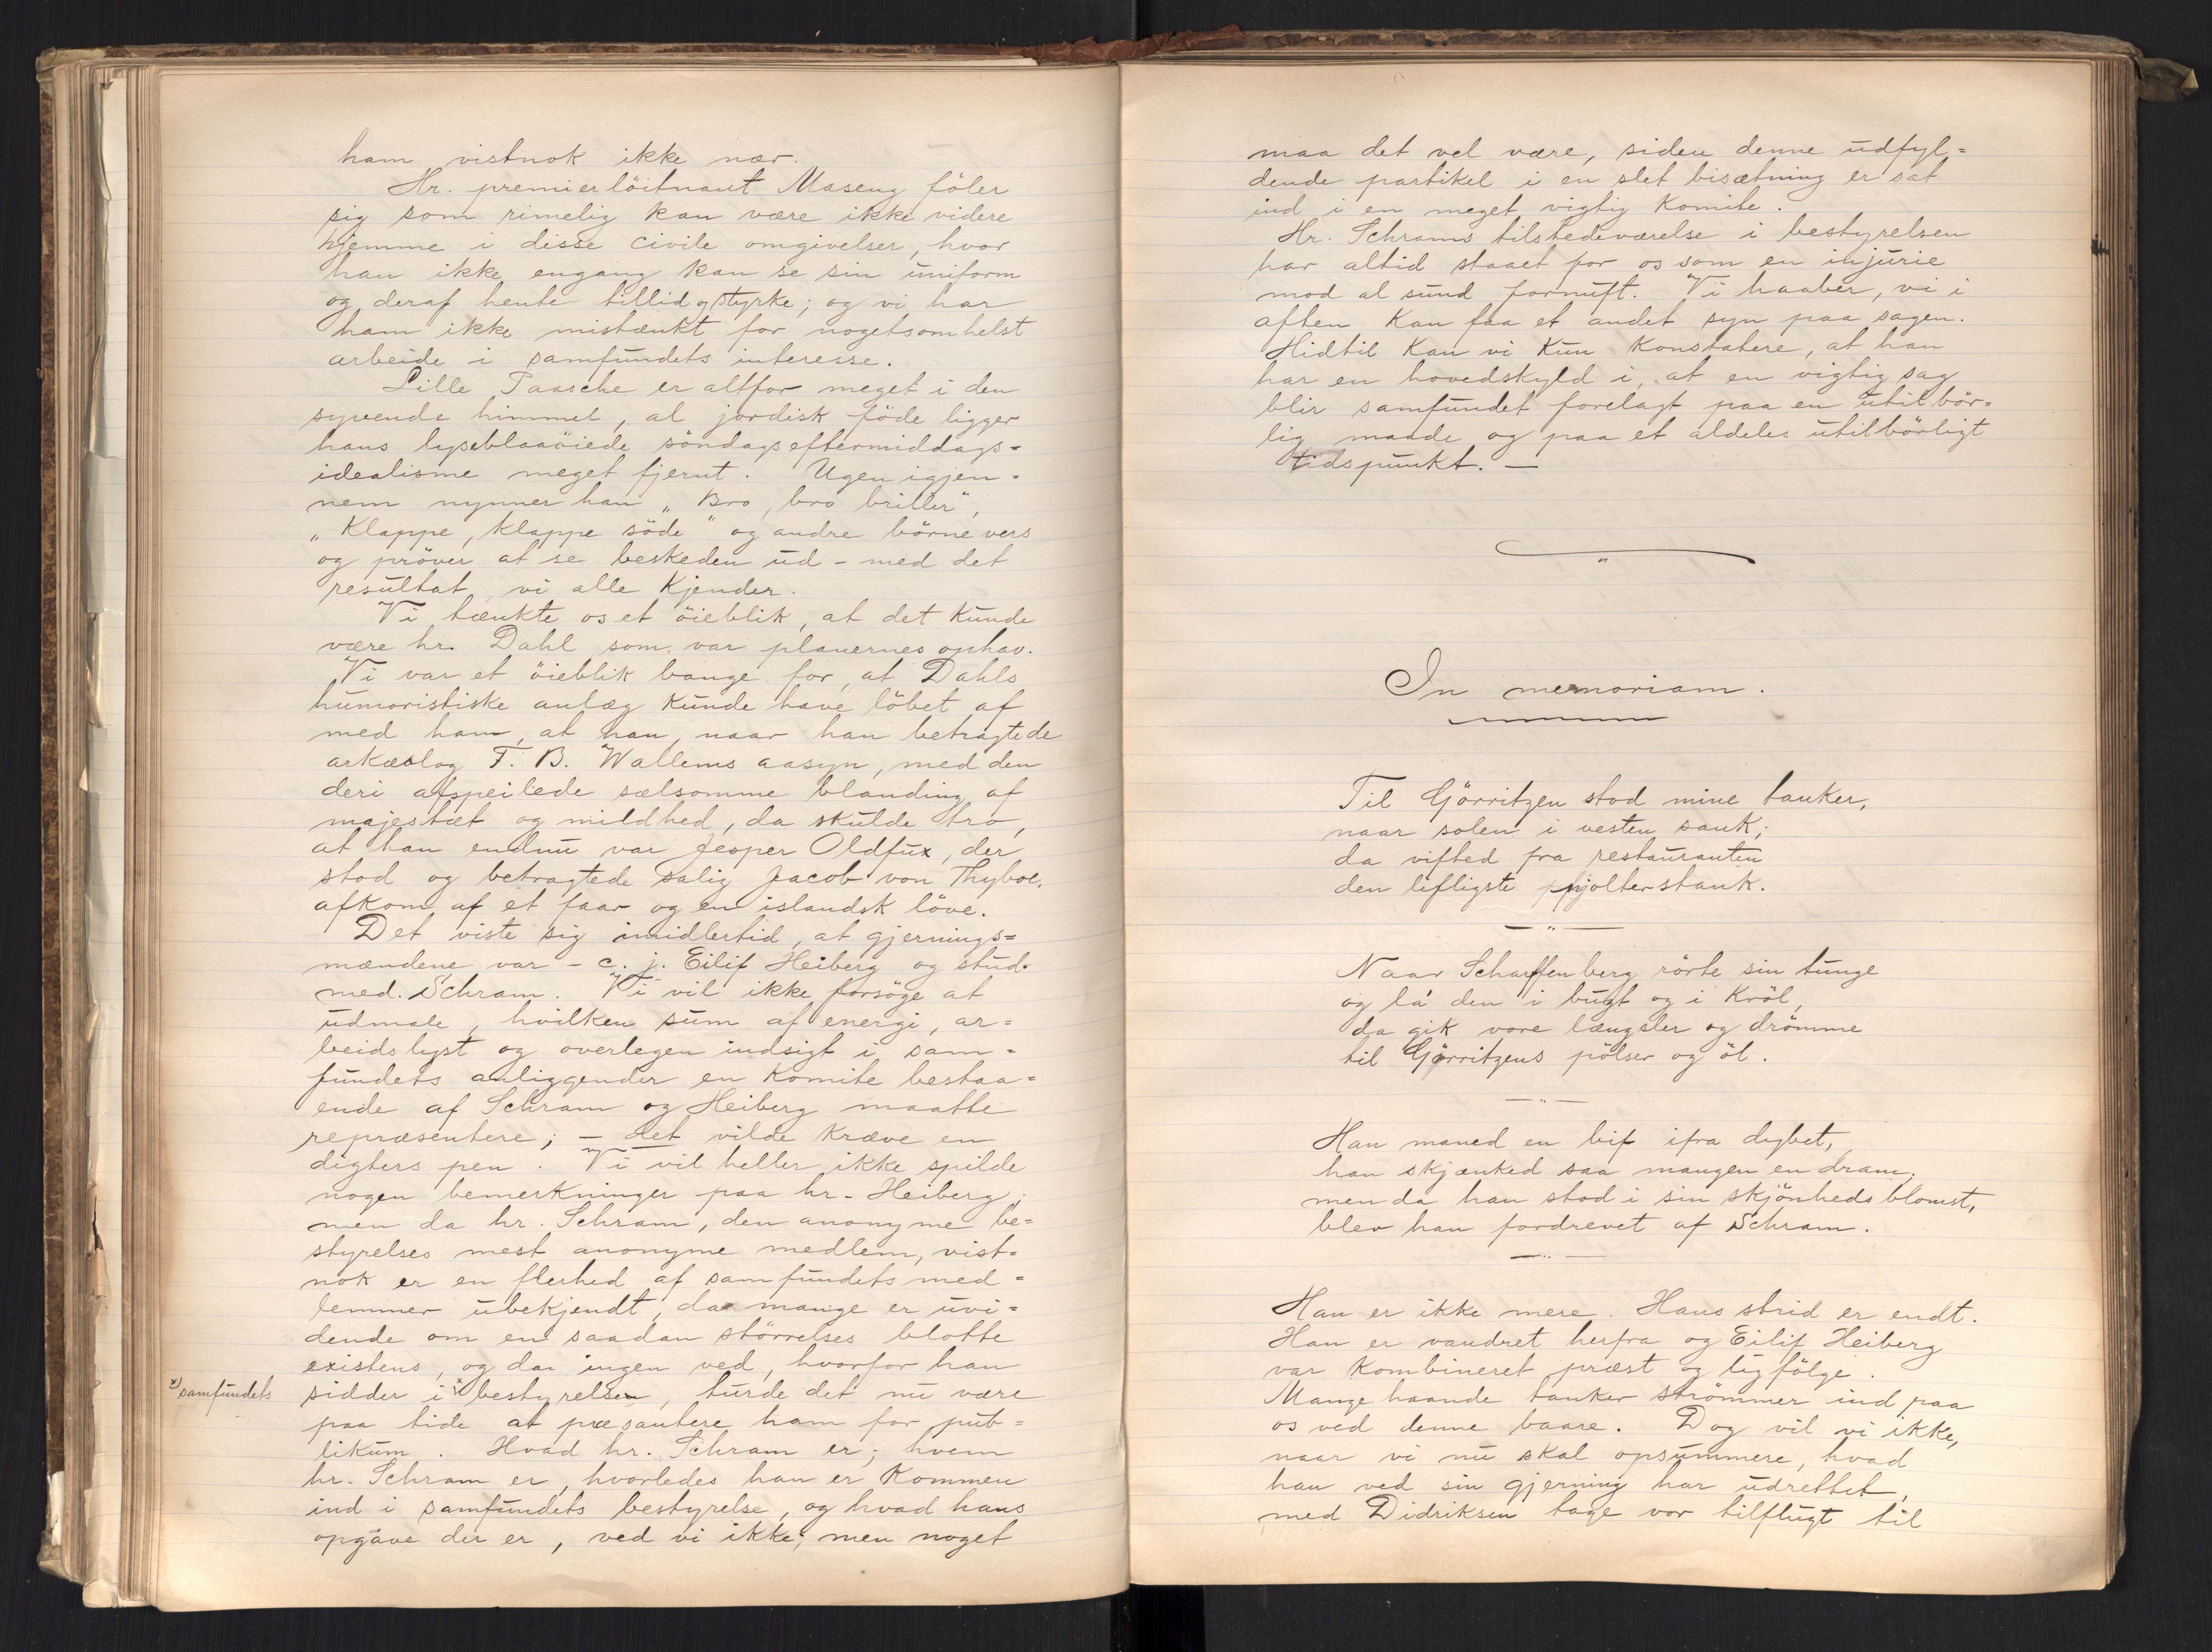 ham vistnok ikke nær.
Hr. premierlöitnant Maseng föler
sig som rimelig kan være ikke videre
hjemme i disse civile omgivelser, hvor
han ikke engang kan se sin uniform
og deraf hente tillid og styrke; og vi har
ham ikke mistænkt for nogetsomhelst
arbeide i samfundets interesse.
Lille Paasche er altfor meget i den
syvende himmel, al jordisk föde ligger
hans lyseblaaöiede söndagseftermiddags=
idealisme meget fjernt. Ugen igjen=
nem nynner han „Bro, bro briller“,
„Klappe, klappe söde“ og andre börnevers
og pröver at se beskeden ud - med det
resultat, vi alle kjender.
Vi tænkte os et öieblik, at det kunde
være hr. Dahl som var planernes ophav.
Vi var et öieblik bange for, at Dahls
humoristiske anlæg kunde have löbet af
med ham, at han, naar han betragtede
arkæolog F. B. Wallems aasyn, med den
deri afspeilede sælsomme blanding af
majestæt og mildhed, da skulde tro,
at han endnu var Jesper Oldfux, der
stod og betragtede salig Jacob von Thyboe,
afkom af et faar og en islandsk löve.
Det viste sig imidlertid, at gjernings=
mændene var - c. j. Eilif Heiberg og stud.
med. Schram. Vi vil ikke forsöge at
udmale, hvilken sum af energi, ar=
beidslyst og overlegen indsigt i sam=
fundets anliggender en komite bestaa=
ende af Schram og Heiberg maatte
repræsentere; - det vilde kræve en
digters pen. Vi vil heller ikke spilde
nogen bemerkninger paa hr. Heiberg;
men da hr. Schram, den anonyme be=
styrelses mest anonyme medlem, vist=
nok er en flerhed af samfundets med=
lemmer ubekjendt, da mange er uvi=
dende om en saadan störrelses blotte
existens, og da ingen ved, hvorfor han
x) samfundets
sidder i x bestyrelsen, turde det nu være
paa tide at præsantere ham for pub=
likum. Hvad hr. Schram er, hvem
hr. Schram er, hvorledes han er kommen
ind i samfundets bestyrelse, og hvad hans
opgave der er, ved vi ikke; men noget
maa det vel være, siden denne udfyl=
dende partikel i en slet bisætning er sat
ind i en meget vigtig komite.
Hr. Schrams tilstedeværelse i bestyrelsen
har altid staaet for os som en injurie
mod al sund fornuft. Vi haaber, vi i
aften kan faa et andet syn paa sagen.
Hidtil kan vi kun konstatere, at han
har en hovedskyld i, at en vigtig sag
blir samfundet forelagt paa en utilbör=
lig maade og paa et aldeles utilbörligt
tidspunkt. —
In memoriam.
Til Görritzen stod mine tanker,
naar solen i vesten sank;
da vifted fra restauranten
den lifligste pjolterstank.
Naar Scharffenberg rörte sin tunge
og la' den i bugt og i kröl,
da gik vore længsler og drömme
til Görritzens pölser og öl.
Han maned en bif ifra dybet,
han skjænked saa mangen en dram;
men da han stod i sin skjönheds blomst,
blev han fordrevet af Schram.
Han er ikke mere. Hans strid er endt.
Han er vandret herfra og Eilif Heiberg
var kombineret præst og ligfölge.
Mange haande tanker strömmer ind paa
os ved denne baare. Dog vil vi ikke,
naar vi nu skal opsummere, hvad
han ved sin gjerning har udrettet,
med Didriksen tage vor tilflugt til